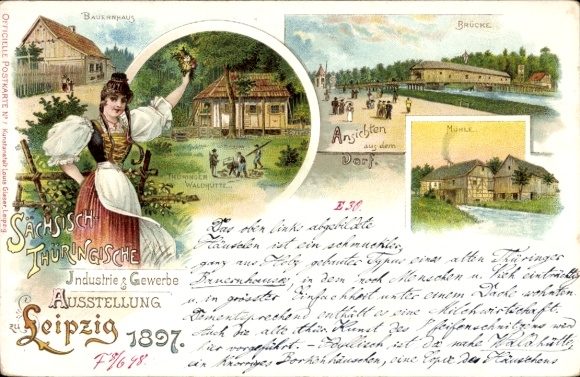 BAUERNHAUS
BRÜCKE.
OFFICIELLE POSTKARTE No 1 Kunstanstalt Louis Glaser, Leipzig.
THÜRINGER
WALDHÜTTE.
Ansichten
aus dem
Dorf.
MÜHLE.
E 30.
SÄCHSISCH-
THÜRINGISCHE
Industrie & Gewerbe
AUSSTELLUNG
ZU
Leipzig
1897.
Das oben links abgebildete
Häuschen ist ein schmuckes,
ganz aus Holz gebauter Typus eines alten Thüringer
Bauernhauses, in dem noch Menschen u. Vieh einträchtig
u. in grösster Einfachheit unter einem Dache wohnten.
Dementsprechend enthält es eine Milchwirtschaft.
Auch die alte thür. Kunst des Pfeifenschnitzens wird
hier vorgeführt. - Idyllisch ist die nahe Waldhütte,
ein knorriges Borkenhäuschen, eine Copie des Häuschens